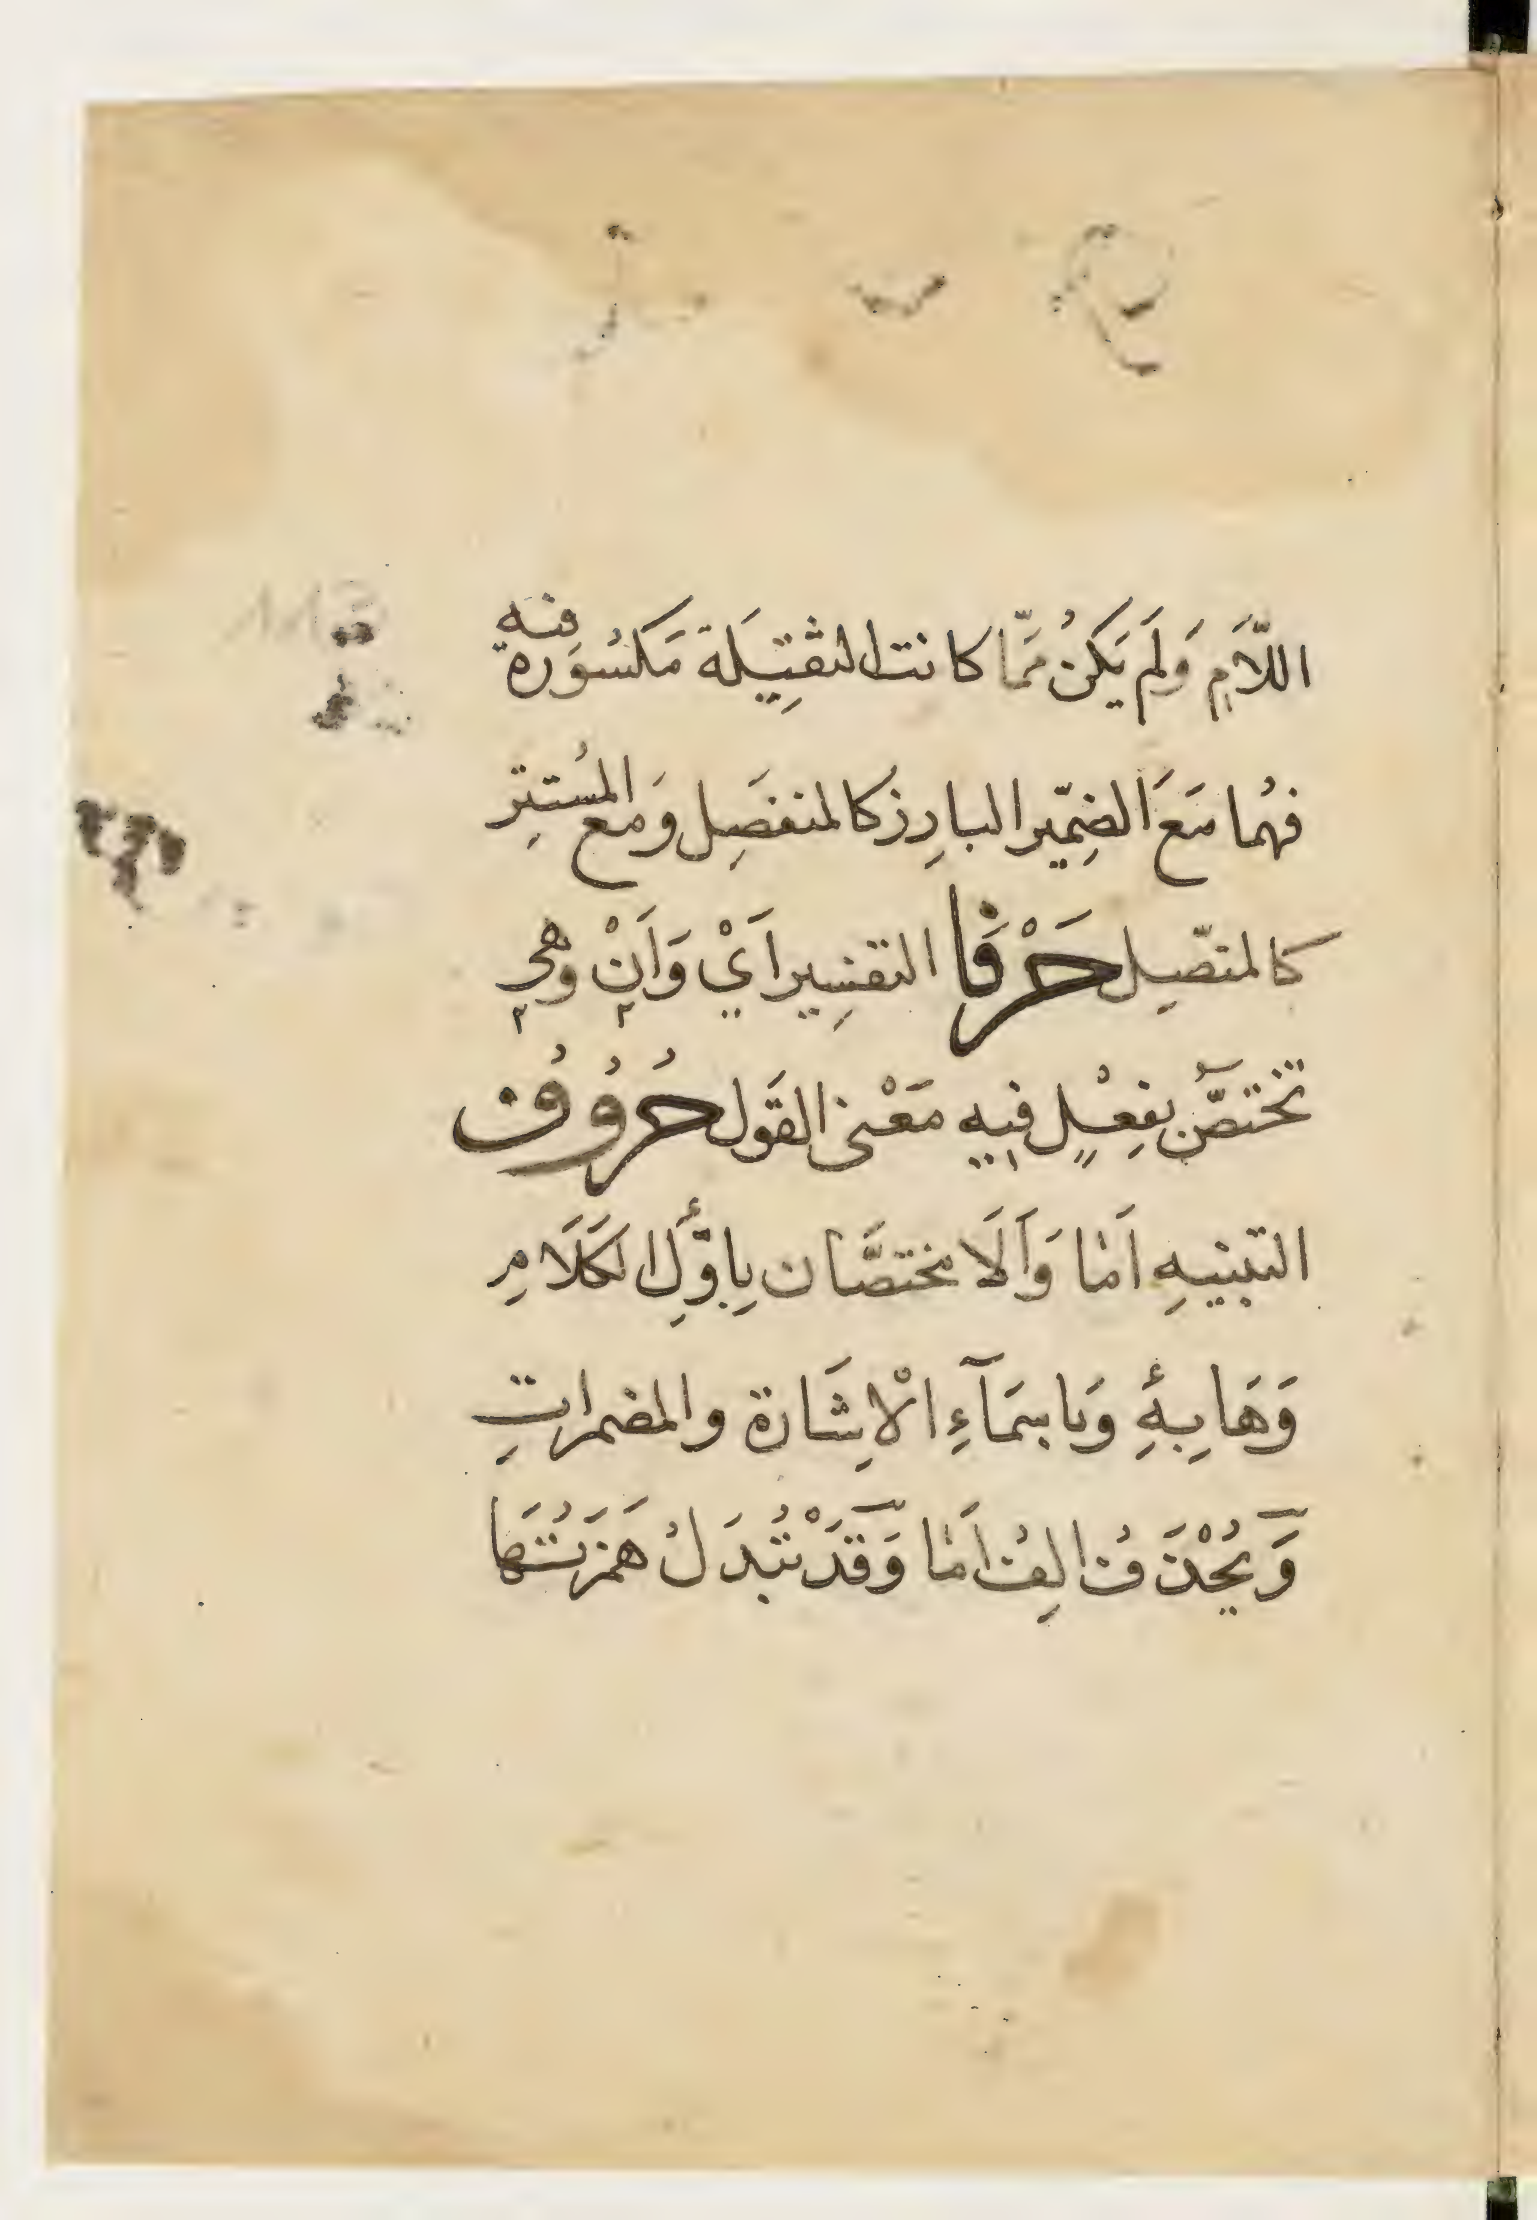 اللَّامِ وَلَم يَكُن مِمَّا كانت الثقِيلَة مَكسُورة فيه
فهُما مَعَ الضِمِّير البارِز كالمنفصِل وَمع المُستتِر
كالمتصّل حَرْفَا التفسِير اَيْ وَاَنْ وهي
تختصّ بفِعْلٍ فيه مَعْنى القَول حُرُوُف
التنبِيهِ اَمَا وَاَلَا مختصَّان بِأوَّلِ الكَلَامِ
وَهَا بِهِ وَباسمَآءِ الْاِشَارة والمضمراتِ
وَيُحْذَفُ الِفُ اَمَا وَقَدْ تُبدَلُ هَمزَتُهَا